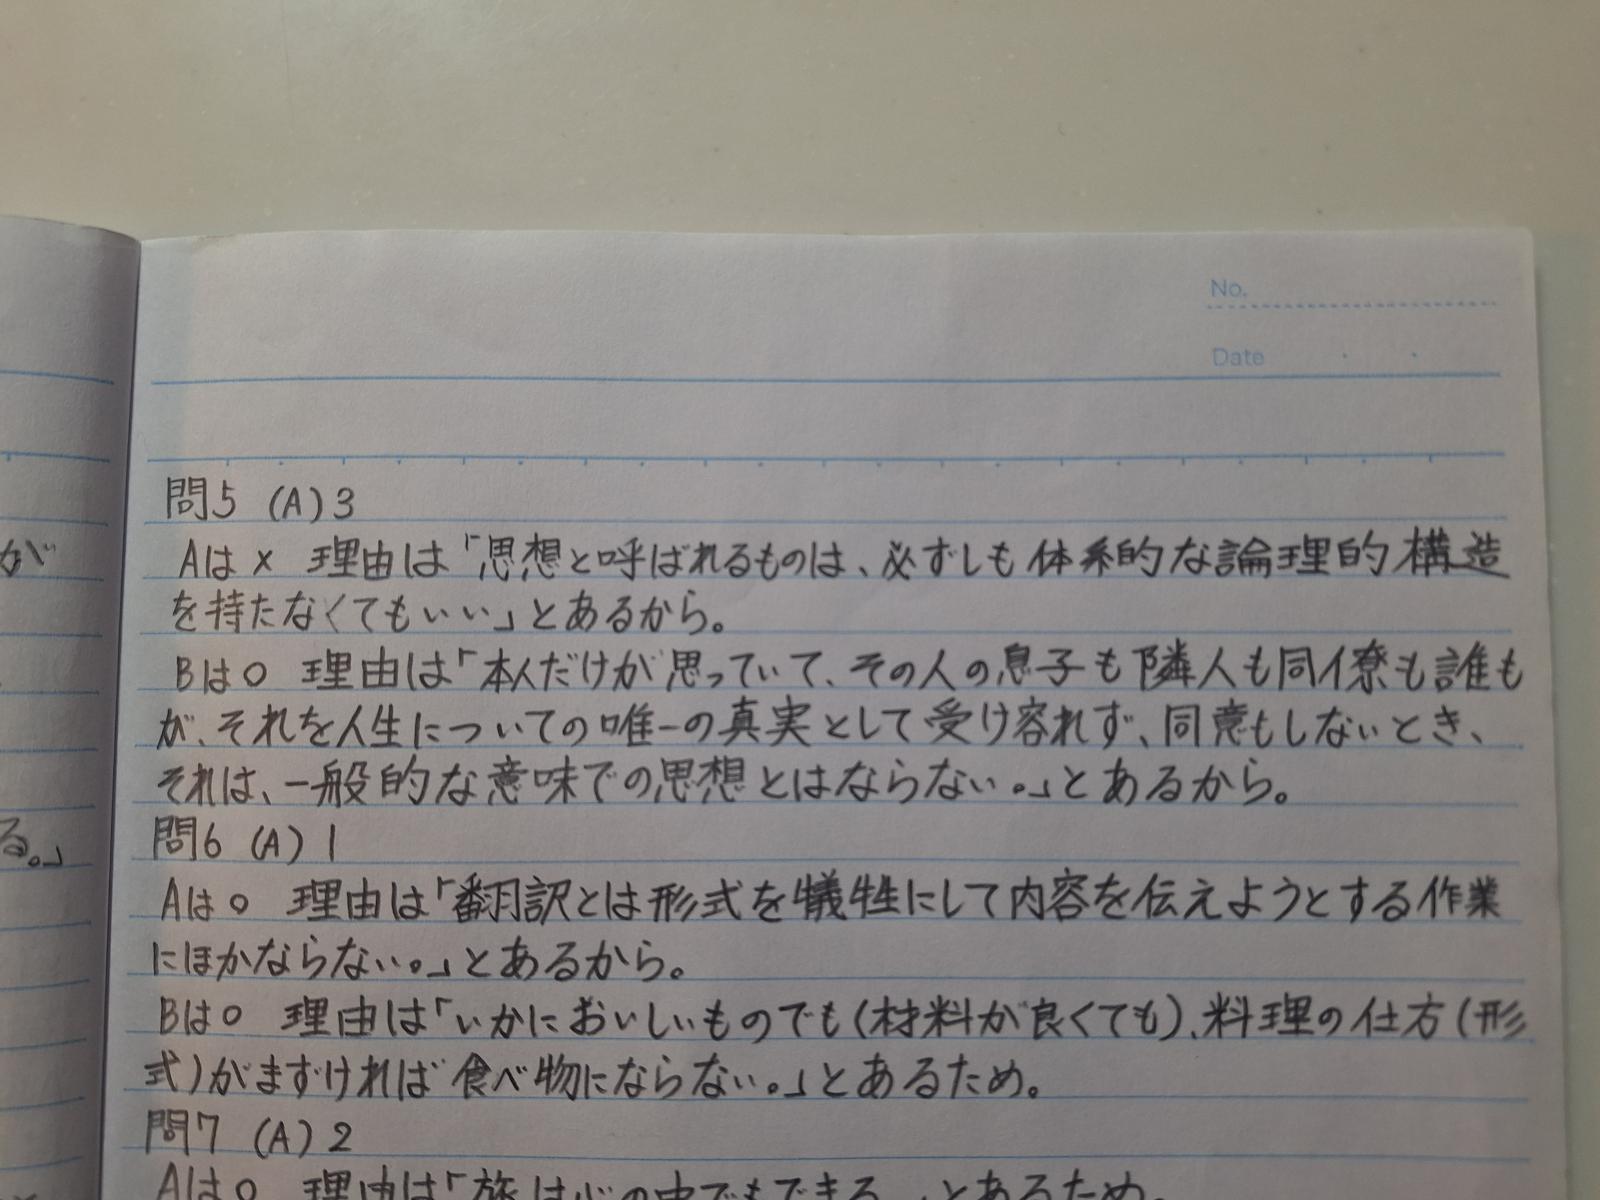 No.
Date
問5 (A) 3
Aは× 理由は「思想と呼ばれるものは、必ずしも体系的な論理的構造
を持たなくてもいい」とあるから。
Bは○ 理由は「本人だけが思っていて、その人の息子も隣人も同僚も誰も
が、それを人生についての唯一の真実として受け容れず、同意もしないとき、
それは、一般的な意味での思想とはならない。」とあるから。
問6 (A) 1
Aは○ 理由は「翻訳とは形式を犠牲にして内容を伝えようとする作業
にほかならない。」とあるから。
Bは○ 理由は「いかにおいしいものでも(材料が良くても)、料理の仕方(形
式)がまずければ食べ物にならない。」とあるため。
問7 (A) 2
Aは○ 理由は「旅は心の中でもできる。」とあるため。
が
る。」